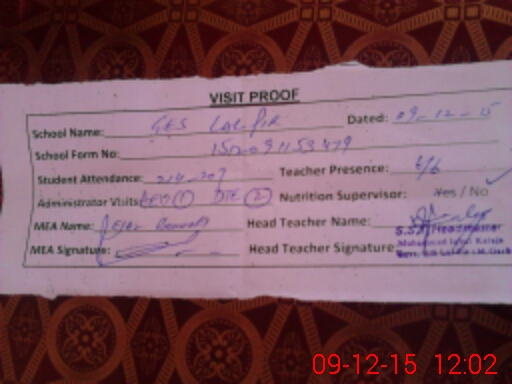 VISIT PROOF
School Name: GES Lal Pir Dated: 09-12-15
School Form No: 
Student Attendance: Teacher Presence: 6/6
Administrator Visits: AEO (1) DTE (2) Nutrition Supervisor: Yes / No
MEA Name: Head Teacher Name:
MEA Signature: Head Teacher Signature
S.S.T/Headmaster
09-12-15 12:02